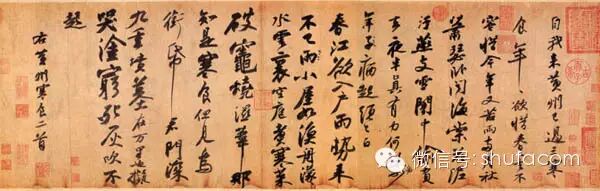 自我來黃州已過三寒
食年年欲惜春春去不
容惜今年又苦雨兩月秋
蕭瑟臥聞海棠花泥
汙燕支雪闇中偷負
去夜半真有力何殊少
年子病起頭已白
春江欲入戶雨勢來
不已雨小屋如漁舟濛濛
水雲裏空庖煮寒菜
破竈燒濕葦那
知是寒食但見烏
銜帋君門深
九重墳墓在万里也擬
哭塗窮死灰吹不
起
右黃州寒食二首
微信号: shufacom